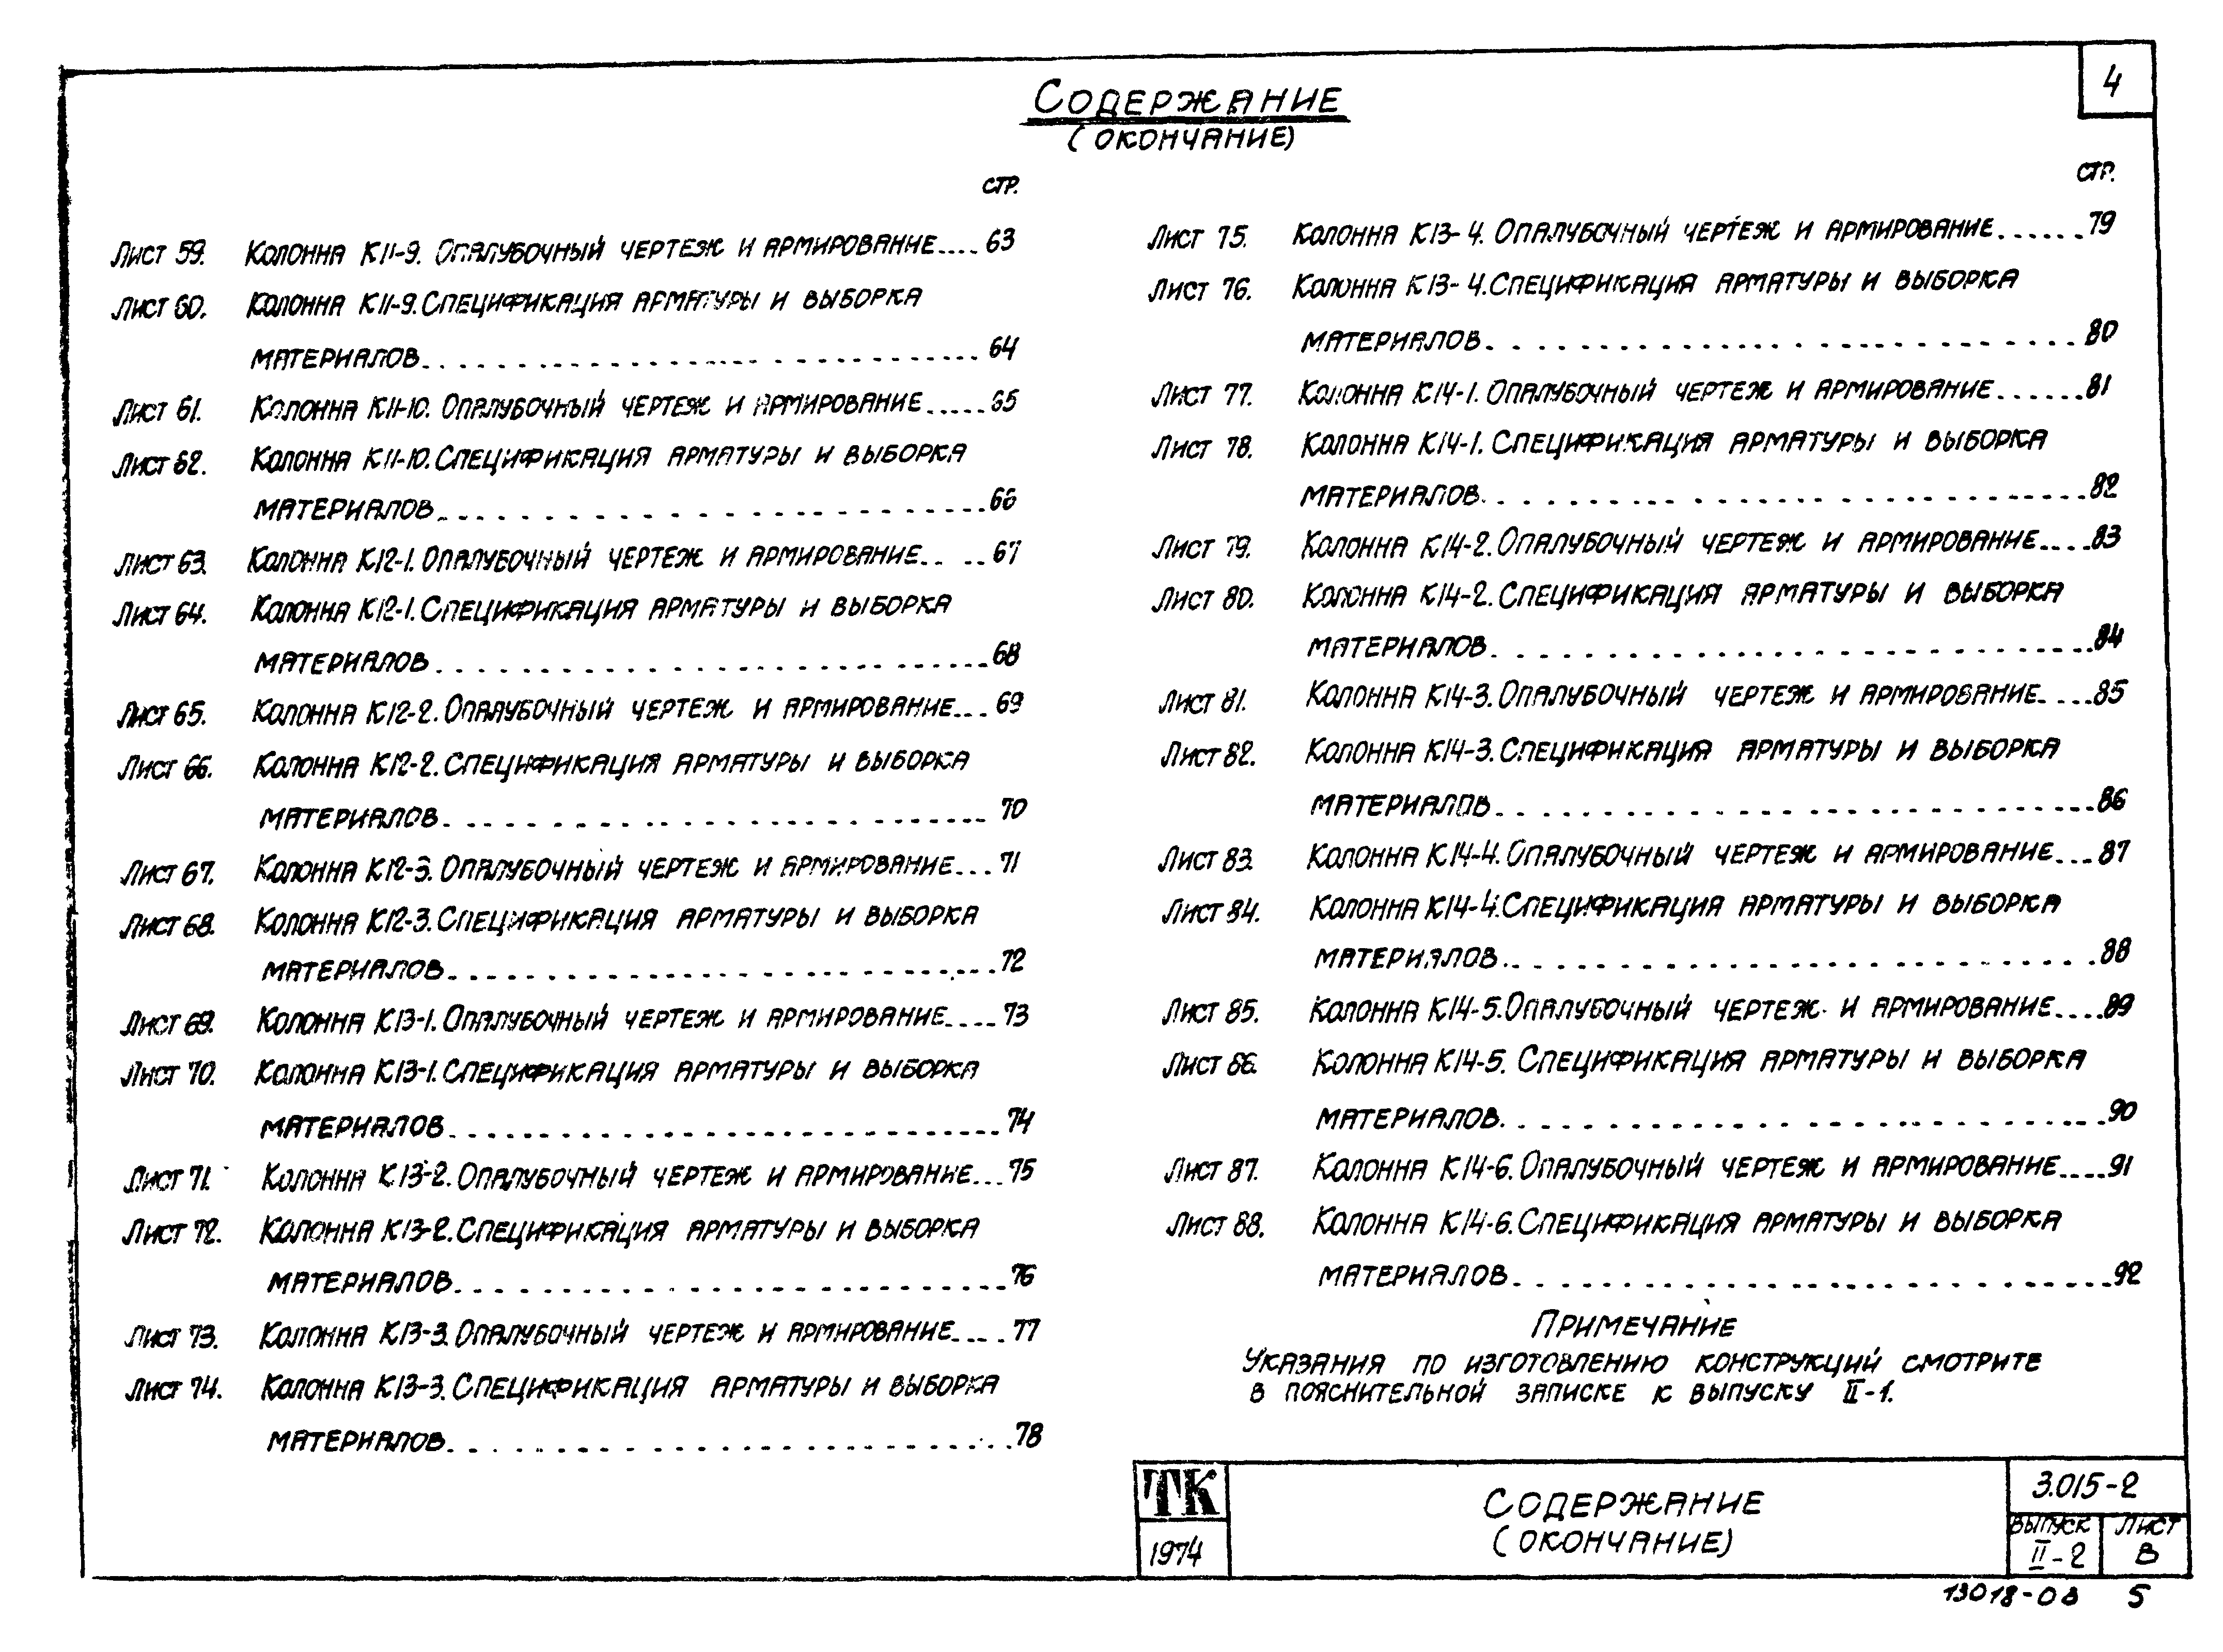 4
Содержание
(окончание)
стр.
Лист 59. Колонна К11-9. Опалубочный чертеж и армирование.... 63
Лист 60. Колонна К11-9. Спецификация арматуры и выборка
материалов 64
Лист 61. Колонна К11-10. Опалубочный чертеж и армирование..... 65
Лист 62. Колонна К11-10. Спецификация арматуры и выборка
материалов 66
Лист 63. Колонна К12-1. Опалубочный чертеж и армирование.. .. 67
Лист 64. Колонна К12-1. Спецификация арматуры и выборка
материалов 68
Лист 65. Колонна К12-2. Опалубочный чертеж и армирование... 69
Лист 66. Колонна К12-2. Спецификация арматуры и выборка
материалов 70
Лист 67. Колонна К12-3. Опалубочный чертеж и армирование... 71
Лист 68. Колонна К12-3. Спецификация арматуры и выборка
материалов 72
Лист 69. Колонна К13-1. Опалубочный чертеж и армирование.... 73
Лист 70. Колонна К13-1. Спецификация арматуры и выборка
материалов 74
Лист 71. Колонна К13-2. Опалубочный чертеж и армирование... 75
Лист 72. Колонна К13-2. Спецификация арматуры и выборка
материалов 76
Лист 73. Колонна К13-3. Опалубочный чертеж и армирование.... 77
Лист 74. Колонна К13-3. Спецификация арматуры и выборка
материалов 78
стр.
Лист 75. Колонна К13-4. Опалубочный чертеж и армирование...... 79
Лист 76. Колонна К13-4. Спецификация арматуры и выборка
материалов 80
Лист 77. Колонна К14-1. Опалубочный чертеж и армирование...... 81
Лист 78. Колонна К14-1. Спецификация арматуры и выборка
материалов 82
Лист 79. Колонна К14-2. Опалубочный чертеж и армирование.... 83
Лист 80. Колонна К14-2. Спецификация арматуры и выборка
материалов 84
Лист 81. Колонна К14-3. Опалубочный чертеж и армирование.... 85
Лист 82. Колонна К14-3. Спецификация арматуры и выборка
материалов 86
Лист 83. Колонна К14-4. Опалубочный чертеж и армирование... 87
Лист 84. Колонна К14-4. Спецификация арматуры и выборка
материалов 88
Лист 85. Колонна К14-5. Опалубочный чертеж и армирование.... 89
Лист 86. Колонна К14-5. Спецификация арматуры и выборка
материалов 90
Лист 87. Колонна К14-6. Опалубочный чертеж и армирование.... 91
Лист 88. Колонна К14-6. Спецификация арматуры и выборка
материалов 92
Примечание
Указания по изготовлению конструкций смотрите
в пояснительной записке к выпуску II-1.
ТК
1974
Содержание
(окончание)
3.015-2
выпуск лист
II-2 В
13018-03 5